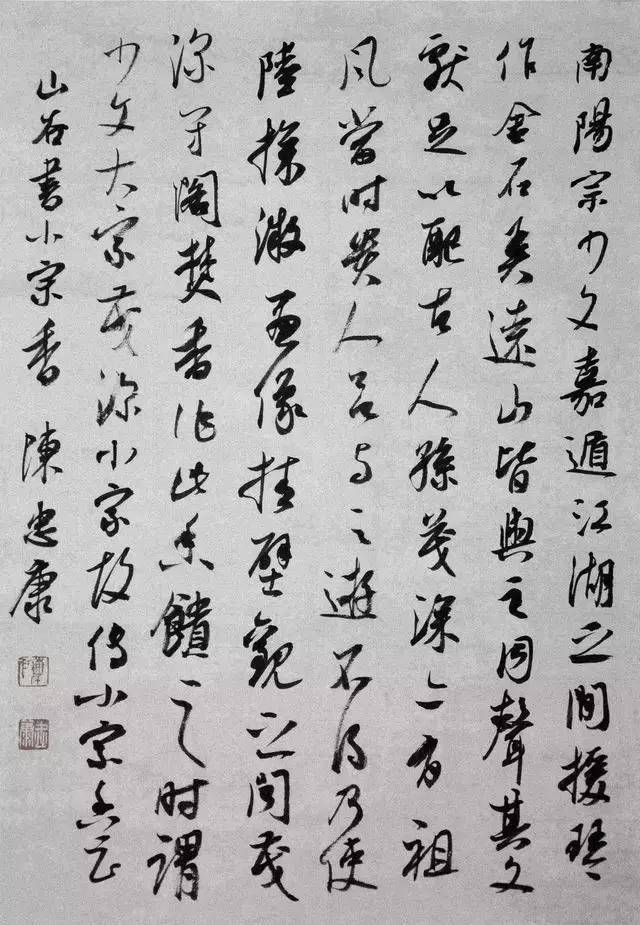 南陽宗少文嘉遁江湖之間援琴
作金石弄遠山皆與之同聲其文
獻足以配古人孫茂深亦有祖
風當時貴人與之遊不得乃使
陸探微畫像挂壁觀之聞茂
深閣焚香作此香饋之時謂
少文大宗茂深小宗故傳小宗香云
山谷書小宗香 陳忠康